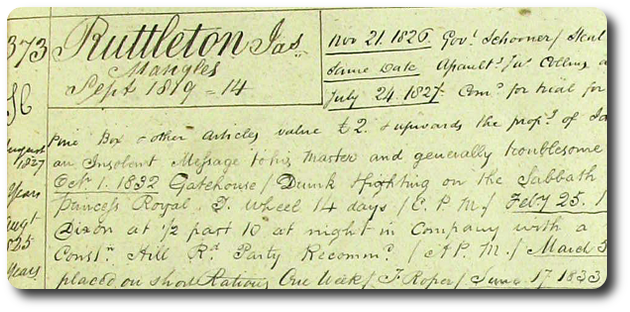 373 Ruttleton Jas Nov 21. 1826. Govt Schooner/
Mangles Same Date Assaultg Jas Collins a
Sept 1819 = 14 July 24. 1827. Comd for trial for
Pine Box & other articles value £2. & upwards the propy of Ja
August an Insolent Message to his Master and generally troublesome
1827 Octr 1. 1832 Gatehouse/ Drunk & fighting on the Sabbath
Years Princess Royal T. Wheel 14 days/ E. P. M./ Feby 25. 1
Augt Dixon at 1/2 past 10 at night in Company with a
1825 Constn Hill Rd Party Recommd / A P. M./ March
Years placed on short Rations One Week/ J. Roper/ June 17 1833